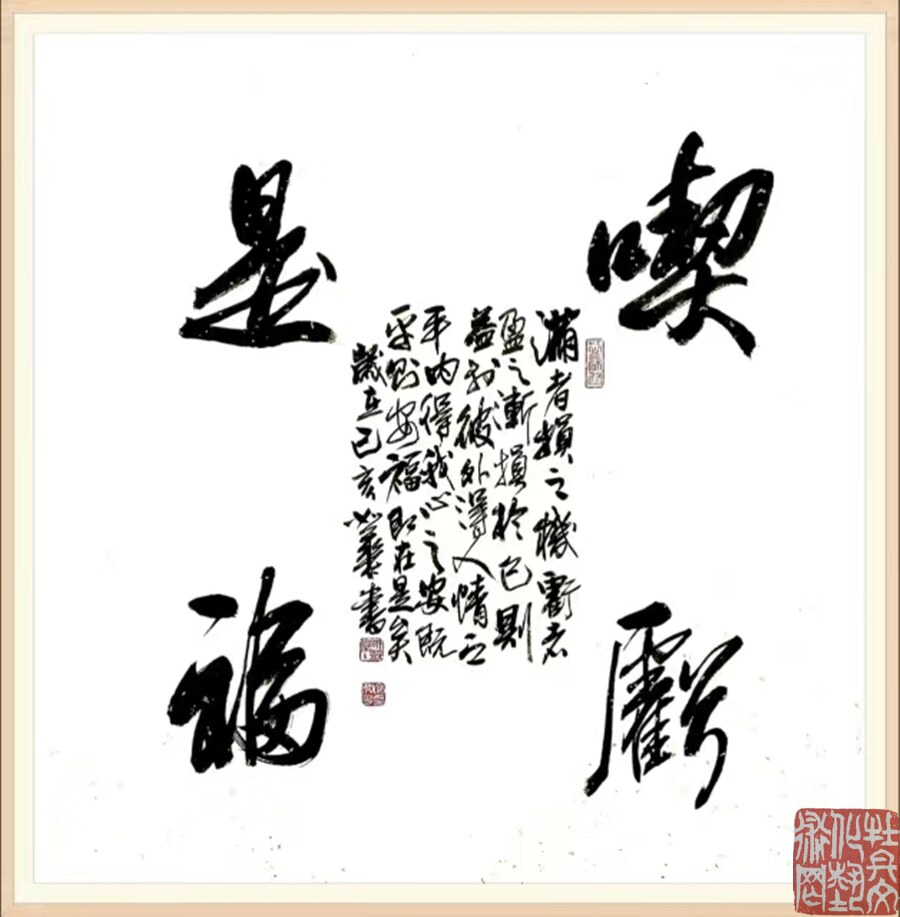 喫虧
是福
滿者損之機虧者
盈之漸損於己則
益於彼外得人情之
平内得我心之安既
平則安福即在是矣
歲在己亥華書
杜兵文
化藝
術网